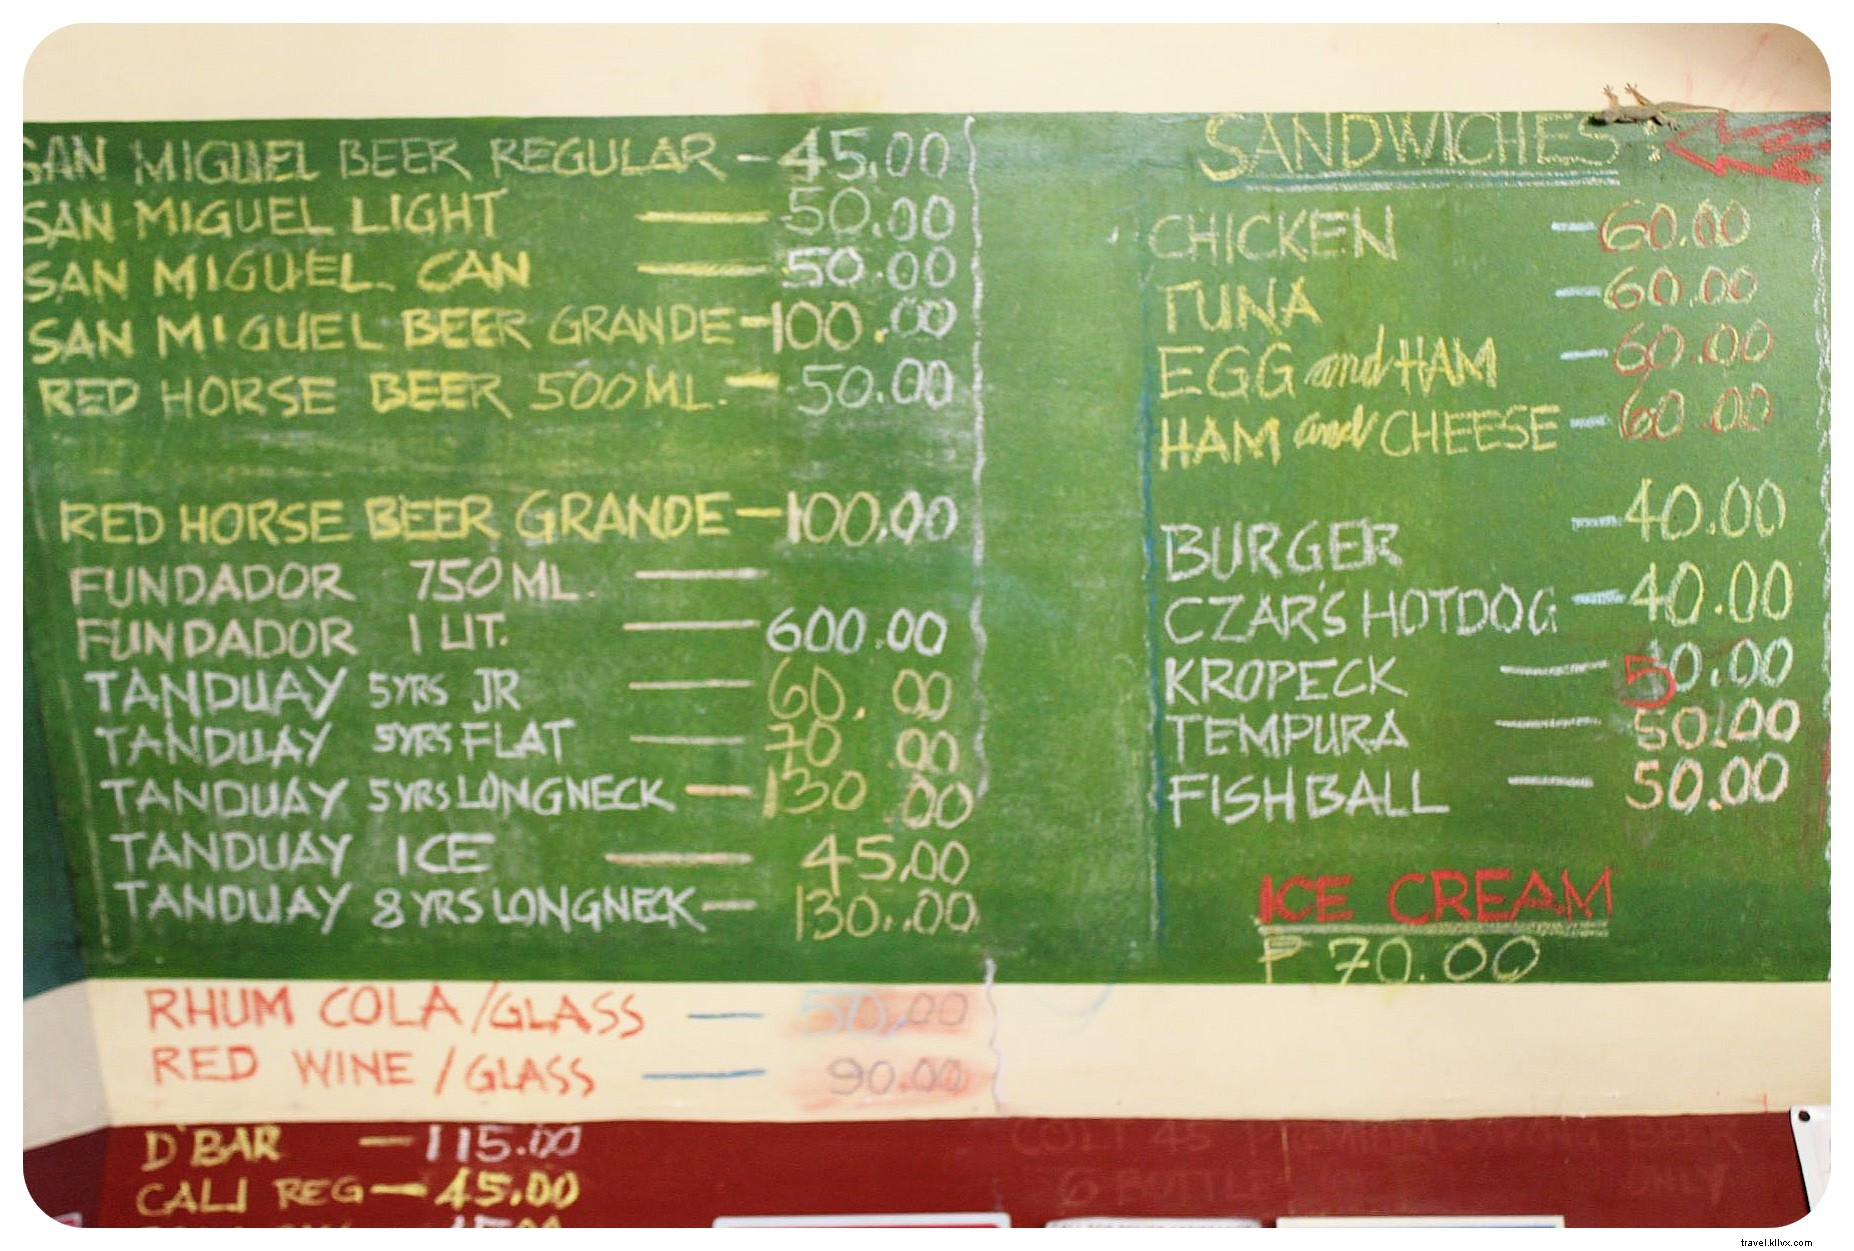 SAN MIGUEL BEER REGULAR - 45.00
SAN MIGUEL LIGHT — 50.00
SAN MIGUEL CAN — 50.00
SAN MIGUEL BEER GRANDE - 100.00
RED HORSE BEER 500 ML. - 50.00
RED HORSE BEER GRANDE - 100.00
FUNDADOR 750 ML. —
FUNDADOR 1 LIT. — 600.00
TANDUAY 5YRS JR — 60.00
TANDUAY 5YRS FLAT — 70.00
TANDUAY 5YRS LONGNECK - 130.00
TANDUAY ICE — 45.00
TANDUAY 8 YRS LONGNECK - 130.00
RHUM COLA/GLASS — 50.00
RED WINE/GLASS — 90.00
D'BAR — 115.00
CALI REG — 45.00
SANDWICHES:
CHICKEN - 60.00
TUNA - 60.00
EGG and HAM - 60.00
HAM and CHEESE - 60.00
BURGER - 40.00
CZAR'S HOTDOG - 40.00
KROPECK — 50.00
TEMPURA — 50.00
FISHBALL — 50.00
ICE CREAM
P 70.00
COLT 45 PREMIUM STRONG BEER
6 BOTTLE ONLY
travel.kllvx.com